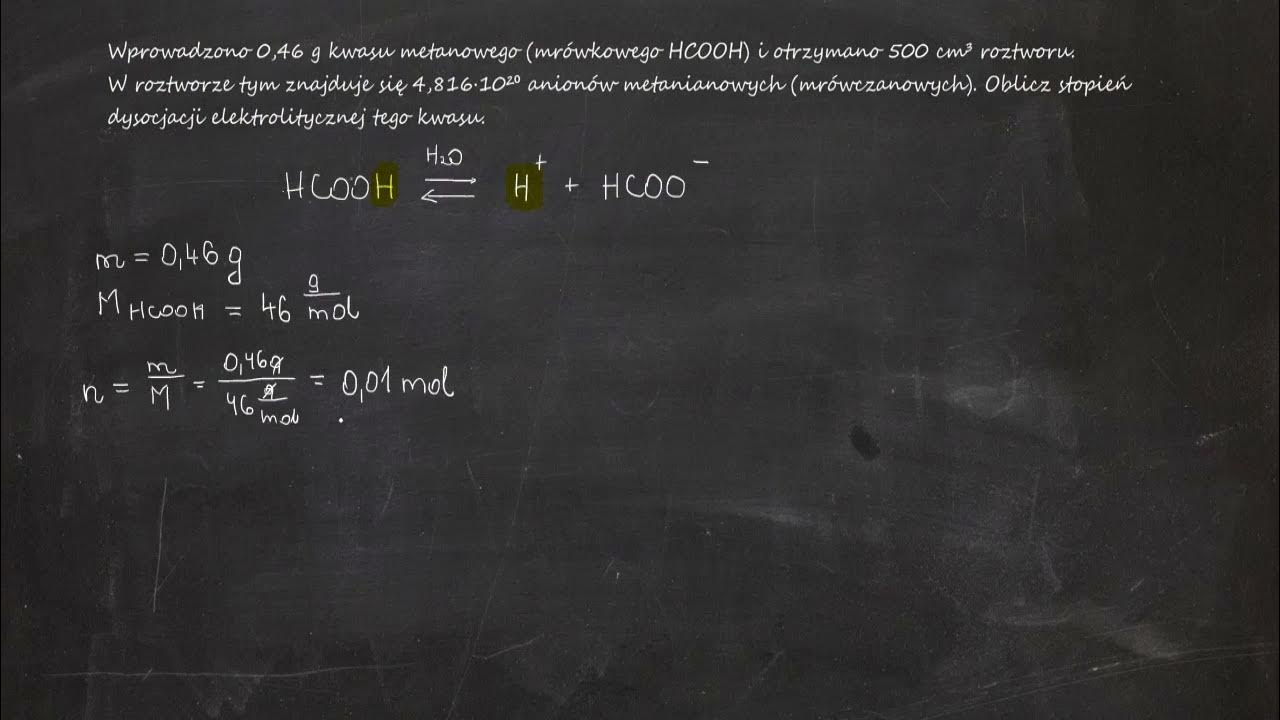 Wprowadzono 0,46 g kwasu metanowego (mrówkowego HCOOH) i otrzymano 500 cm³ roztworu.
W roztworze tym znajduje się 4,816·10²⁰ anionów metanianowych (mrówczanowych). Oblicz stopień
dysocjacji elektrolitycznej tego kwasu.
HCOOH ⇌ (H₂O) H⁺ + HCOO⁻
m = 0,46 g
M HCOOH = 46 g/mol
n = m/M = 0,46g / 46 g/mol = 0,01 mol